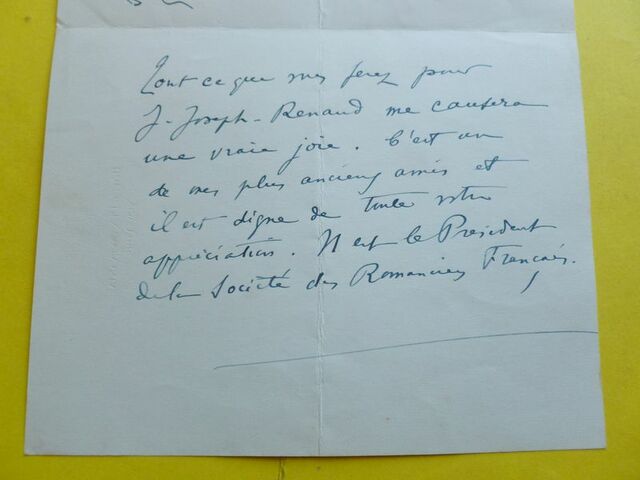 Tout ce que vous ferez pour
J-Joseph-Renaud me causera
une vraie joie. C'est un
de mes plus anciens amis et
il est digne de toute votre
appréciation. Il est le Président
de la Société des Romanciers Français.